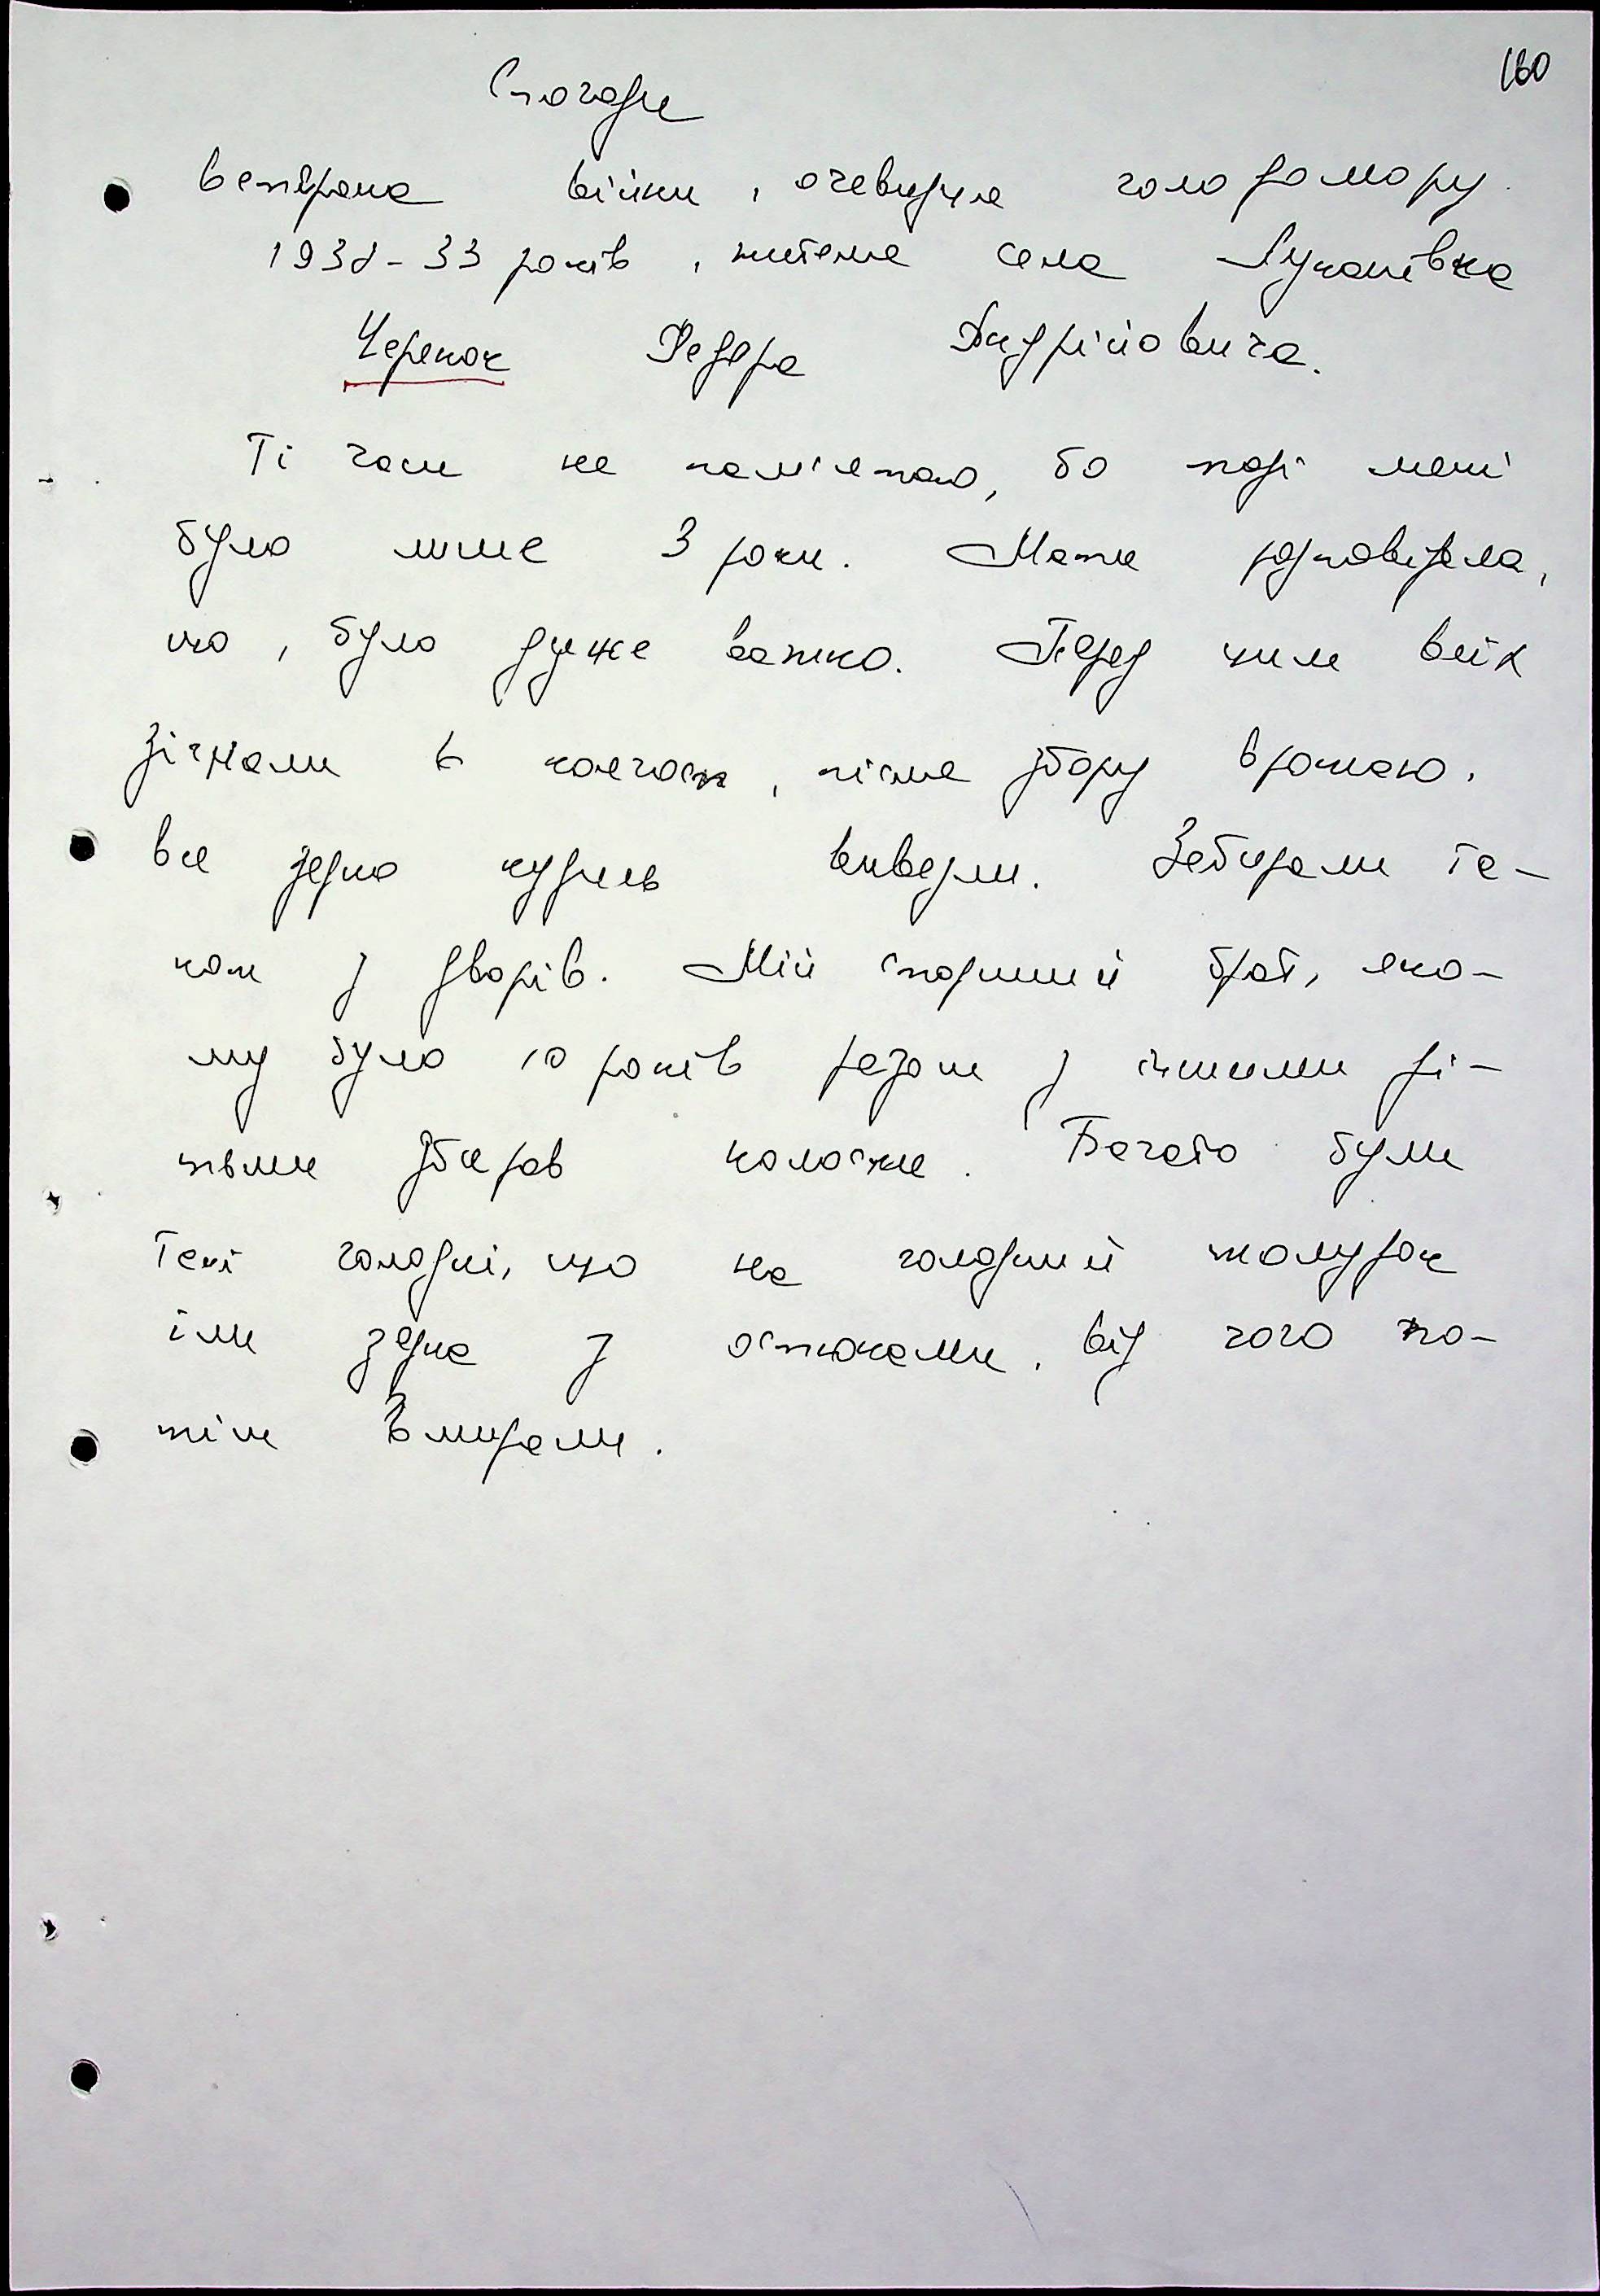 160
Спогади
ветерана війни, очевидця голодомору
1932-33 років, жителя села Луканівка
Черепок Федора Андрійовича.
Ті часи не пам'ятаю, бо тоді мені
було лише 3 роки. Мати розповідала,
що, було дуже важко. Перед цим всіх
зігнали в колгосп, після збору врожаю,
все зерно кудись вивезли. Забирали та-
кож з дворів. Мій старший брат, яко-
му було 10 років разом з іншими ді-
тьми збирав колоски. Багато були
такі голодні, що на голодний шолудок
їли зерна з остюками, від чого по-
тім вмирали.